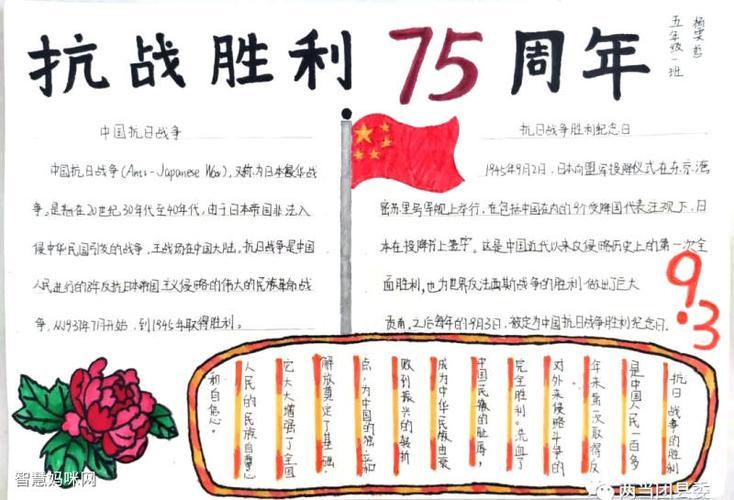 抗战胜利75周年
五年级一班
杨雯哲
中国抗日战争
中国抗日战争(Anti-Japanese War),又称为日本侵华战
争。是指在20世纪30年代至40年代,由于日本帝国非法入
侵中华民国引发的战争,主战场在中国大陆。抗日战争是中国
人民进行的8年反抗日本帝国主义侵略的伟大的民族革命战
争,从1937年7月开始,到1945年取得胜利。
抗日战争胜利纪念日
1945年9月2日,日本向盟军投降仪式在东京湾
密苏里号军舰上举行,在包括中国在内的9个受降国代表注视下,日
本在投降书上签字。这是中国近代以来反侵略历史上的第一次全
面胜利,也为世界反法西斯战争的胜利做出了巨大
贡献,之后每年的9月3日,被定为中国抗日战争胜利纪念日。
9.3
抗日战争的胜利
是中国人民一百多
年来第一次取得反
对外来侵略斗争的
完全胜利。洗血了
中国民族的耻辱,
成为中华民族由衰
败到振兴的转折
点,为中国的独立和
解放奠定了基础,
它大大增强了全国
人民的民族自尊心
和自信心。
智慧妈咪网
两当团县委